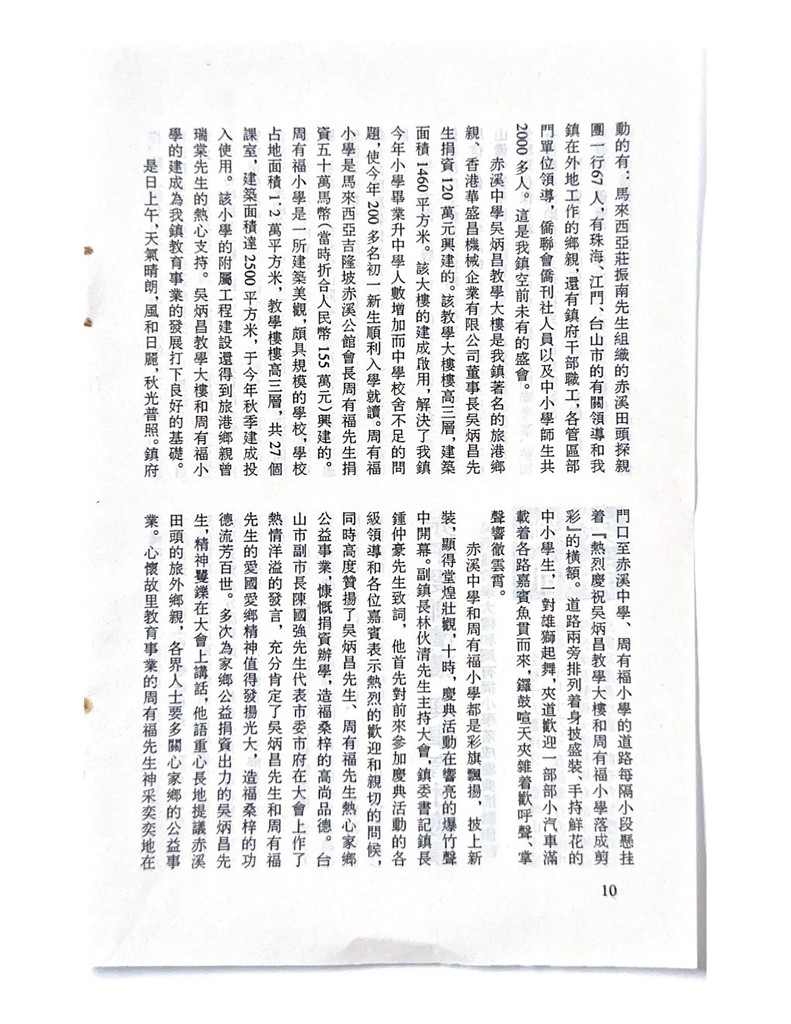 動的有：馬來西亞莊振南先生組織的赤溪田頭探親
團一行67人，有珠海、江門、台山市的有關領導和我
鎮在外地工作的鄉親，還有鎮府干部職工，各管區部
門單位領導，僑聯會僑刊社人員以及中小學師生共
2000多人。這是我鎮空前未有的盛會。
赤溪中學吳炳昌教學大樓是我鎮著名的旅港鄉
親、香港華盛昌機械企業有限公司董事長吳炳昌先
生捐資120萬元興建的。該教學大樓樓高三層，建築
面積1460平方米。該大樓的建成啟用，解決了我鎮
今年小學畢業升中學人數增加而中學校舍不足的問
題，使今年200多名初一新生順利入學就讀。周有福
小學是馬來西亞吉隆坡赤溪公館會長周有福先生捐
資五十萬馬幣（當時折合人民幣155萬元）興建的。
周有福小學是一所建築美觀，頗具規模的學校，學校
占地面積1.2萬平方米，教學樓樓高三層，共27個
課室，建築面積達2500平方米，于今年秋季建成投
入使用。該小學的附屬工程建設還得到旅港鄉親曾
瑞棠先生的熱心支持。吳炳昌教學大樓和周有福小
學的建成為我鎮教育事業的發展打下良好的基礎。
是日上午，天氣晴朗，風和日麗，秋光普照。鎮府
門口至赤溪中學、周有福小學的道路每隔小段懸挂
着『熱烈慶祝吳炳昌教學大樓和周有福小學落成剪
彩』的橫額。道路兩旁排列着身披盛裝、手持鮮花的
中小學生，一對雄獅起舞，夾道歡迎一部部小汽車滿
載着各路嘉賓魚貫而來，鑼鼓喧天夾雜着歡呼聲、掌
聲響徹雲霄。
赤溪中學和周有福小學都是彩旗飄揚，披上新
裝，顯得堂煌壯觀，十時，慶典活動在響亮的爆竹聲
中開幕。副鎮長林伙清先生主持大會，鎮委書記鎮長
鍾仲豪先生致詞，他首先對前來參加慶典活動的各
級領導和各位嘉賓表示熱烈的歡迎和親切的問候，
同時高度贊揚了吳炳昌先生、周有福先生熱心家鄉
公益事業，慷慨捐資辦學，造福桑梓的高尚品德。台
山市副市長陳國強先生代表市委市府在大會上作了
熱情洋溢的發言，充分肯定了吳炳昌先生和周有福
先生的愛國愛鄉精神值得發揚光大，造福桑梓的功
德流芳百世。多次為家鄉公益捐資出力的吳炳昌先
生，精神矍鑠在大會上講話，他語重心長地提議赤溪
田頭的旅外鄉親，各界人士要多關心家鄉的公益事
業。心懷故里教育事業的周有福先生神采奕奕地在
10